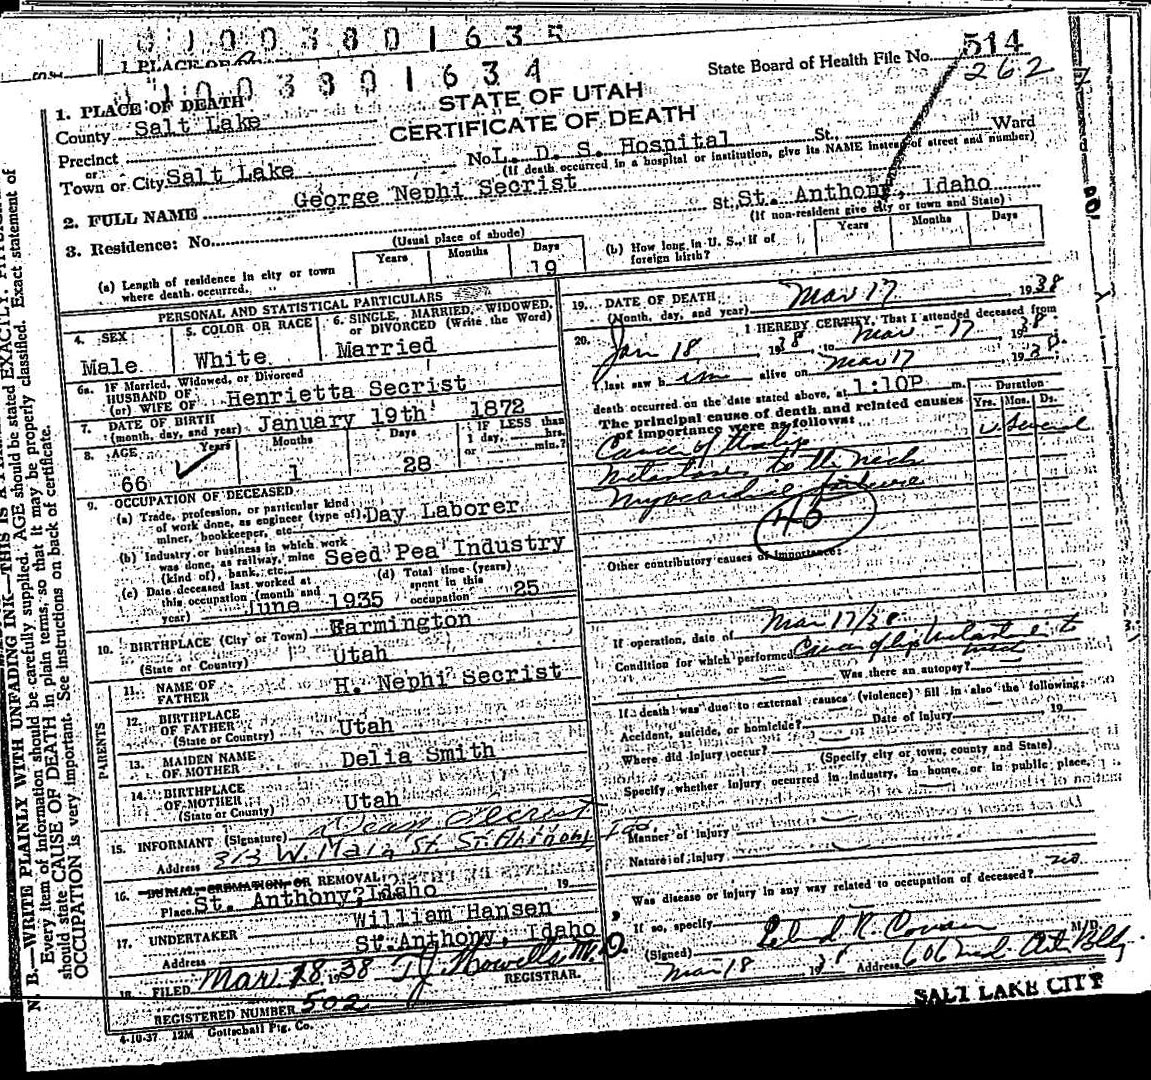 01003801635
1 PLACE OF
01003801634
State Board of Health File No. 514
262
STATE OF UTAH
CERTIFICATE OF DEATH
1. PLACE OF DEATH
County Salt Lake
Precinct
or
Town or City Salt Lake No. L. D. S. Hospital St. Ward
(If death occurred in a hospital or institution, give its NAME instead of street and number)
2. FULL NAME George Nephi Secrist
3. Residence: No. St. St. Anthony, Idaho
(Usual place of abode) (If non-resident give city or town and State)
(a) Length of residence in city or town where death occurred. Years Months Days 19
(b) How long in U. S., if of foreign birth? Years Months Days
PERSONAL AND STATISTICAL PARTICULARS
4. SEX Male
5. COLOR OR RACE White
6. SINGLE, MARRIED, WIDOWED, or DIVORCED (Write the Word) Married
6a. IF Married, Widowed, or Divorced
HUSBAND OF
(or) WIFE OF Henrietta Secrist
7. DATE OF BIRTH
(month, day, and year) January 19th 1872
8. AGE 66 Years Months 1 Days 28 IF LESS than 1 day, hrs. or min.?
9. OCCUPATION OF DECEASED
(a) Trade, profession, or particular kind of work done, as engineer (type of), miner, bookkeeper, etc. Day Laborer
(b) Industry or business in which work was done, as railway, mine (kind of), bank, etc. Seed Pea Industry
(c) Date deceased last worked at this occupation (month and year) June 1935
(d) Total time (years) spent in this occupation 25
10. BIRTHPLACE (City or Town) Farmington
(State or Country) Utah
PARENTS
11. NAME OF FATHER H. Nephi Secrist
12. BIRTHPLACE OF FATHER (State or Country) Utah
13. MAIDEN NAME OF MOTHER Delia Smith
14. BIRTHPLACE OF MOTHER (State or County) Utah
15. INFORMANT (Signature) Dean Secrist
Address 313 W. Main St. St. Anthony Ida.
16. BURIAL, CREMATION, OR REMOVAL
Place St. Anthony, Idaho 19
17. UNDERTAKER William Hansen
Address St. Anthony, Idaho
18. FILED Mar. 18 1938 T J Howells M. D.
REGISTRAR.
REGISTERED NUMBER 502
4-10-37 12M Gottschall Ptg. Co.
19. DATE OF DEATH
(Month, day, and year) Mar 17 1938
20. I HEREBY CERTIFY, That I attended deceased from
Jan 18, 1938, to Mar - 17, 1938.
I last saw him alive on Mar 17, 1938.
death occurred on the date stated above, at 1:10P m.
The principal cause of death and related causes of importance were as follows:
Duration
Yrs. Mos. Ds.
Cancer of the lip Several
Metastases to the neck
Myocardial failure
45
Other contributory causes of importance:
If operation, date of Mar 17/38
Condition for which performed Cancer of lip Metastases to neck
Was there an autopsy?
If death was due to external causes (violence) fill in also the following:
Accident, suicide, or homicide? Date of Injury 19
Where did injury occur?
(Specify city or town, county and State)
Specify whether injury occurred in industry, in home, or in public place.
Manner of Injury
Nature of Injury
Was disease or injury in any way related to occupation of deceased? no
If so, specify
(Signed) Leland R. Cowan M/D.
Mar 18 1938 Address 606 Med. Arts Bldg.
SALT LAKE CITY
N. B.—WRITE PLAINLY WITH UNFADING INK—THIS IS A
Every item of information should be carefully supplied. AGE should be stated EXACTLY.
should state CAUSE OF DEATH in plain terms, so that it may be properly classified. Exact statement of
OCCUPATION is very important. See instructions on back of certificate.